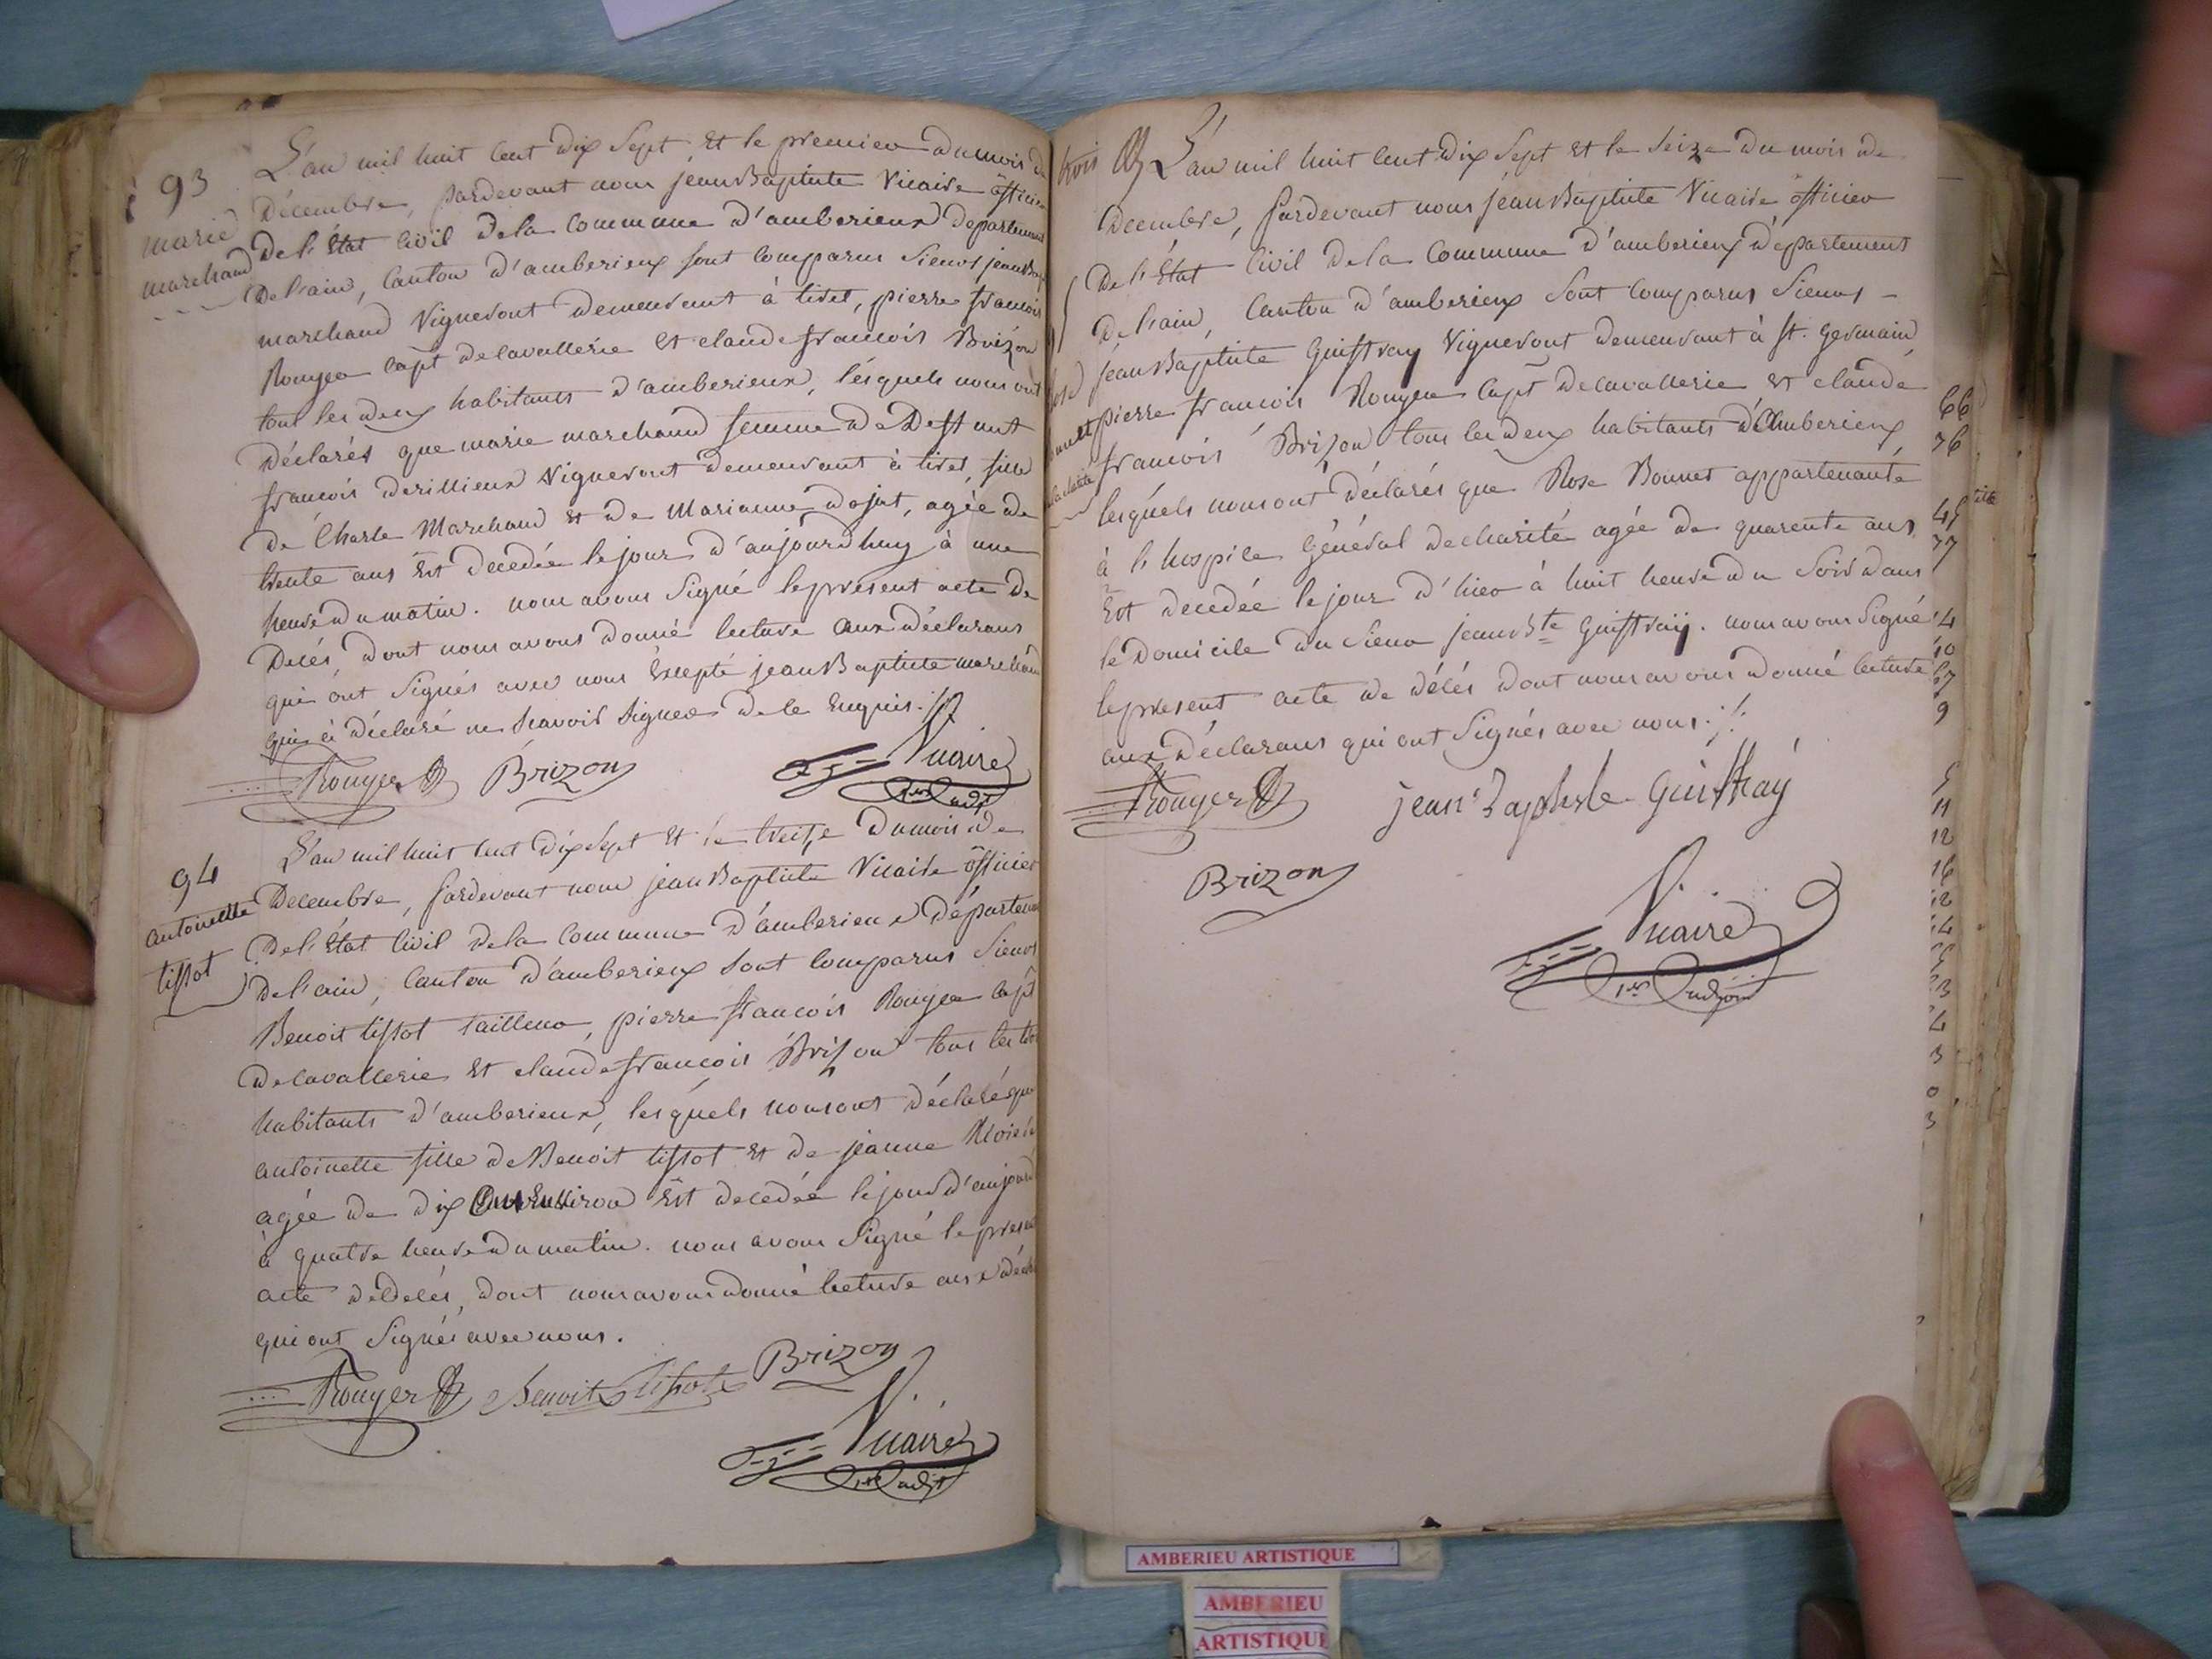 93
marie
marchand
L'an mil huit cent dix sept et le premier du mois de
Décembre, pardevant nous jean Baptiste Vicaire officier
De l'État Civil De la Commune d'amberieux Departement
De l'ain, Canton d'amberieux sont comparus Sieurs jean Bap
marchand Vigneront demeurant à tiret, pierre francois
Rouyer capt de cavallerie et claude francois Brizon
tout les deux habitants d'amberieux, lesquels nous ont
Déclarés que marie marchand femme de Deffunt
francois derillieux Vigneront demeurant à tiret, fille
de Charle Marchand et de Marianne dojat, agée de
trente ans Est decedée le jour d'aujourdhuy à une
heure du matin. nous avons Signé le present acte de
Decés, dont nous avons donné lecture aux déclarans
qui ont Signés avec nous Excepté jean Baptiste marchand
qui à déclaré ne scavoir signer de le Enquis ./.
Rouyer Brizon Vicaire
1er adjt
94
antoinette
tissot
L'an mil huit cent dix sept et le treize du mois de
Decembre, pardevant nous jean Baptiste Vicaire officier
De l'État Civil de la Commune d'amberieux Départem
De l'ain, Canton d'amberieux sont comparus Sieurs
Benoit tissot tailleur, pierre francois Rouyer capt
de cavallerie et claude francois Brizon tous les trois
habitants d'amberieux, lesquels nous ont déclaré que
antoinette fille de Benoit tissot et de jeanne
agée de dix Environ Est decedée le jour d'aujourd
à quatre heure du matin. nous avons Signé le present
acte de decés, dont nous avons donné lecture aux décla
qui ont Signés avec nous.
Rouyer Benoit tissot Brizon
Vicaire
1er adjt
trois L'an mil huit cent dix sept et le seize du mois de
Decembre, pardevant nous jean Baptiste Vicaire officier
De l'État Civil De la Commune d'amberieux département
De l'ain, Canton d'amberieux sont comparus Sieurs -
jean Baptiste Guiffray Vigneront demeurant à st. Germain
pierre francois Rouyer capt de cavallerie et claude
francois Brizon tous les deux habitants d'Amberieux
lesquels nous ont déclarés que Rose Bonnet appartenante
à l'hospice Général de charité agée de quarente ans
Est decedée le jour d'hier à huit heure du soir dans
le domicile du sieur jean Bte Guiffray. nous avons Signé
le present acte de décés dont nous avons donné lecture
aux déclarans qui ont Signés avec nous ./.
Rouyer jean Baptiste Guiffray
Brizon
Vicaire
1er adjoint
66
76
77
14
10
67
9
11
12
16
12
14
3
0
3
AMBERIEU ARTISTIQUE
AMBERIEU
ARTISTIQUE